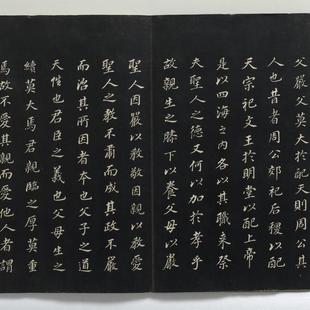 父嚴父莫大於配天則周公其
人也昔者周公郊祀后稷以配
天宗祀文王於明堂以配上帝
是以四海之內各以其職来祭
夫聖人之德又何以加於孝乎
故親生之膝下以養父母日嚴
聖人因嚴以教敬因親以教愛
聖人之教不肅而成其政不嚴
而治其所因者本也父子之道
天性也君臣之義也父母生之
續莫大焉君親臨之厚莫重
焉故不愛其親而愛他人者謂